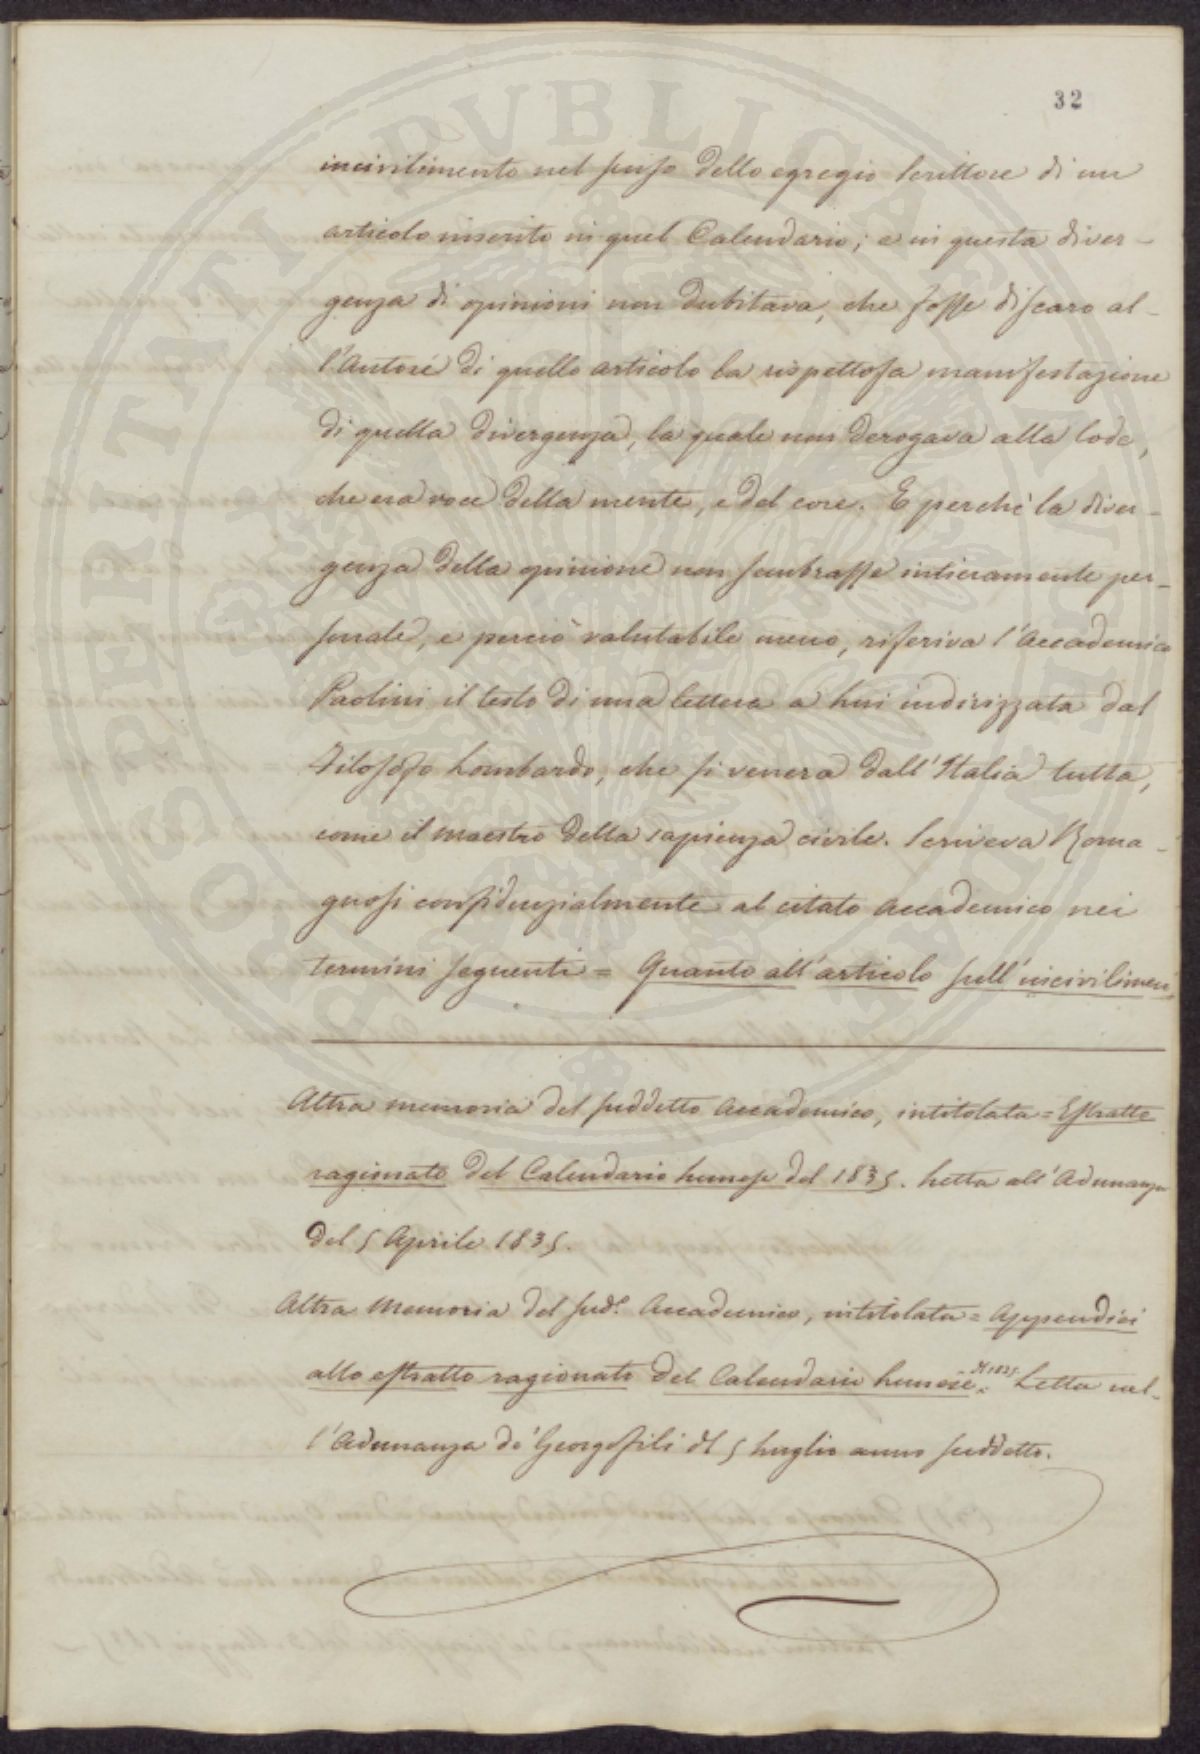 32
incivilimento nel senso dello egregio Scrittore di un
articolo inserito in quel Calendario; e in questa diver-
genza di opinioni non dubitava, che fosse discaro al-
l'Autore di quello articolo la rispettosa manifestazione
di quella divergenza, la quale non derogava alla lode,
che era voce della mente, e del core. E perchè la diver-
genza della opinione non sembrasse intieramente per-
sonale, e perciò valutabile meno, riferiva l'Accademico
Paolini il testo di una lettera a lui indirizzata dal
Filosofo Lombardo, che si venera dall'Italia tutta,
come il maestro della sapienza civile. Scriveva Roma-
gnosi confidenzialmente al citato Accademico nei
termini seguenti = Quanto all'articolo sull'incivilimen
Altra memoria del suddetto Accademico, intitolata = Estratto
ragionato del Calendario Lunese del 1835. Letta all'Adunanza
del 5 Aprile 1835.
Altra Memoria del sud.º Accademico, intitolata = Appendici
allo estratto ragionato del Calendario Lunese. Letta nel-
l'Adunanza de' Georgofili del 5 Luglio anno suddetto.
PROSPERITATI PUBLICAE AUGENDAE